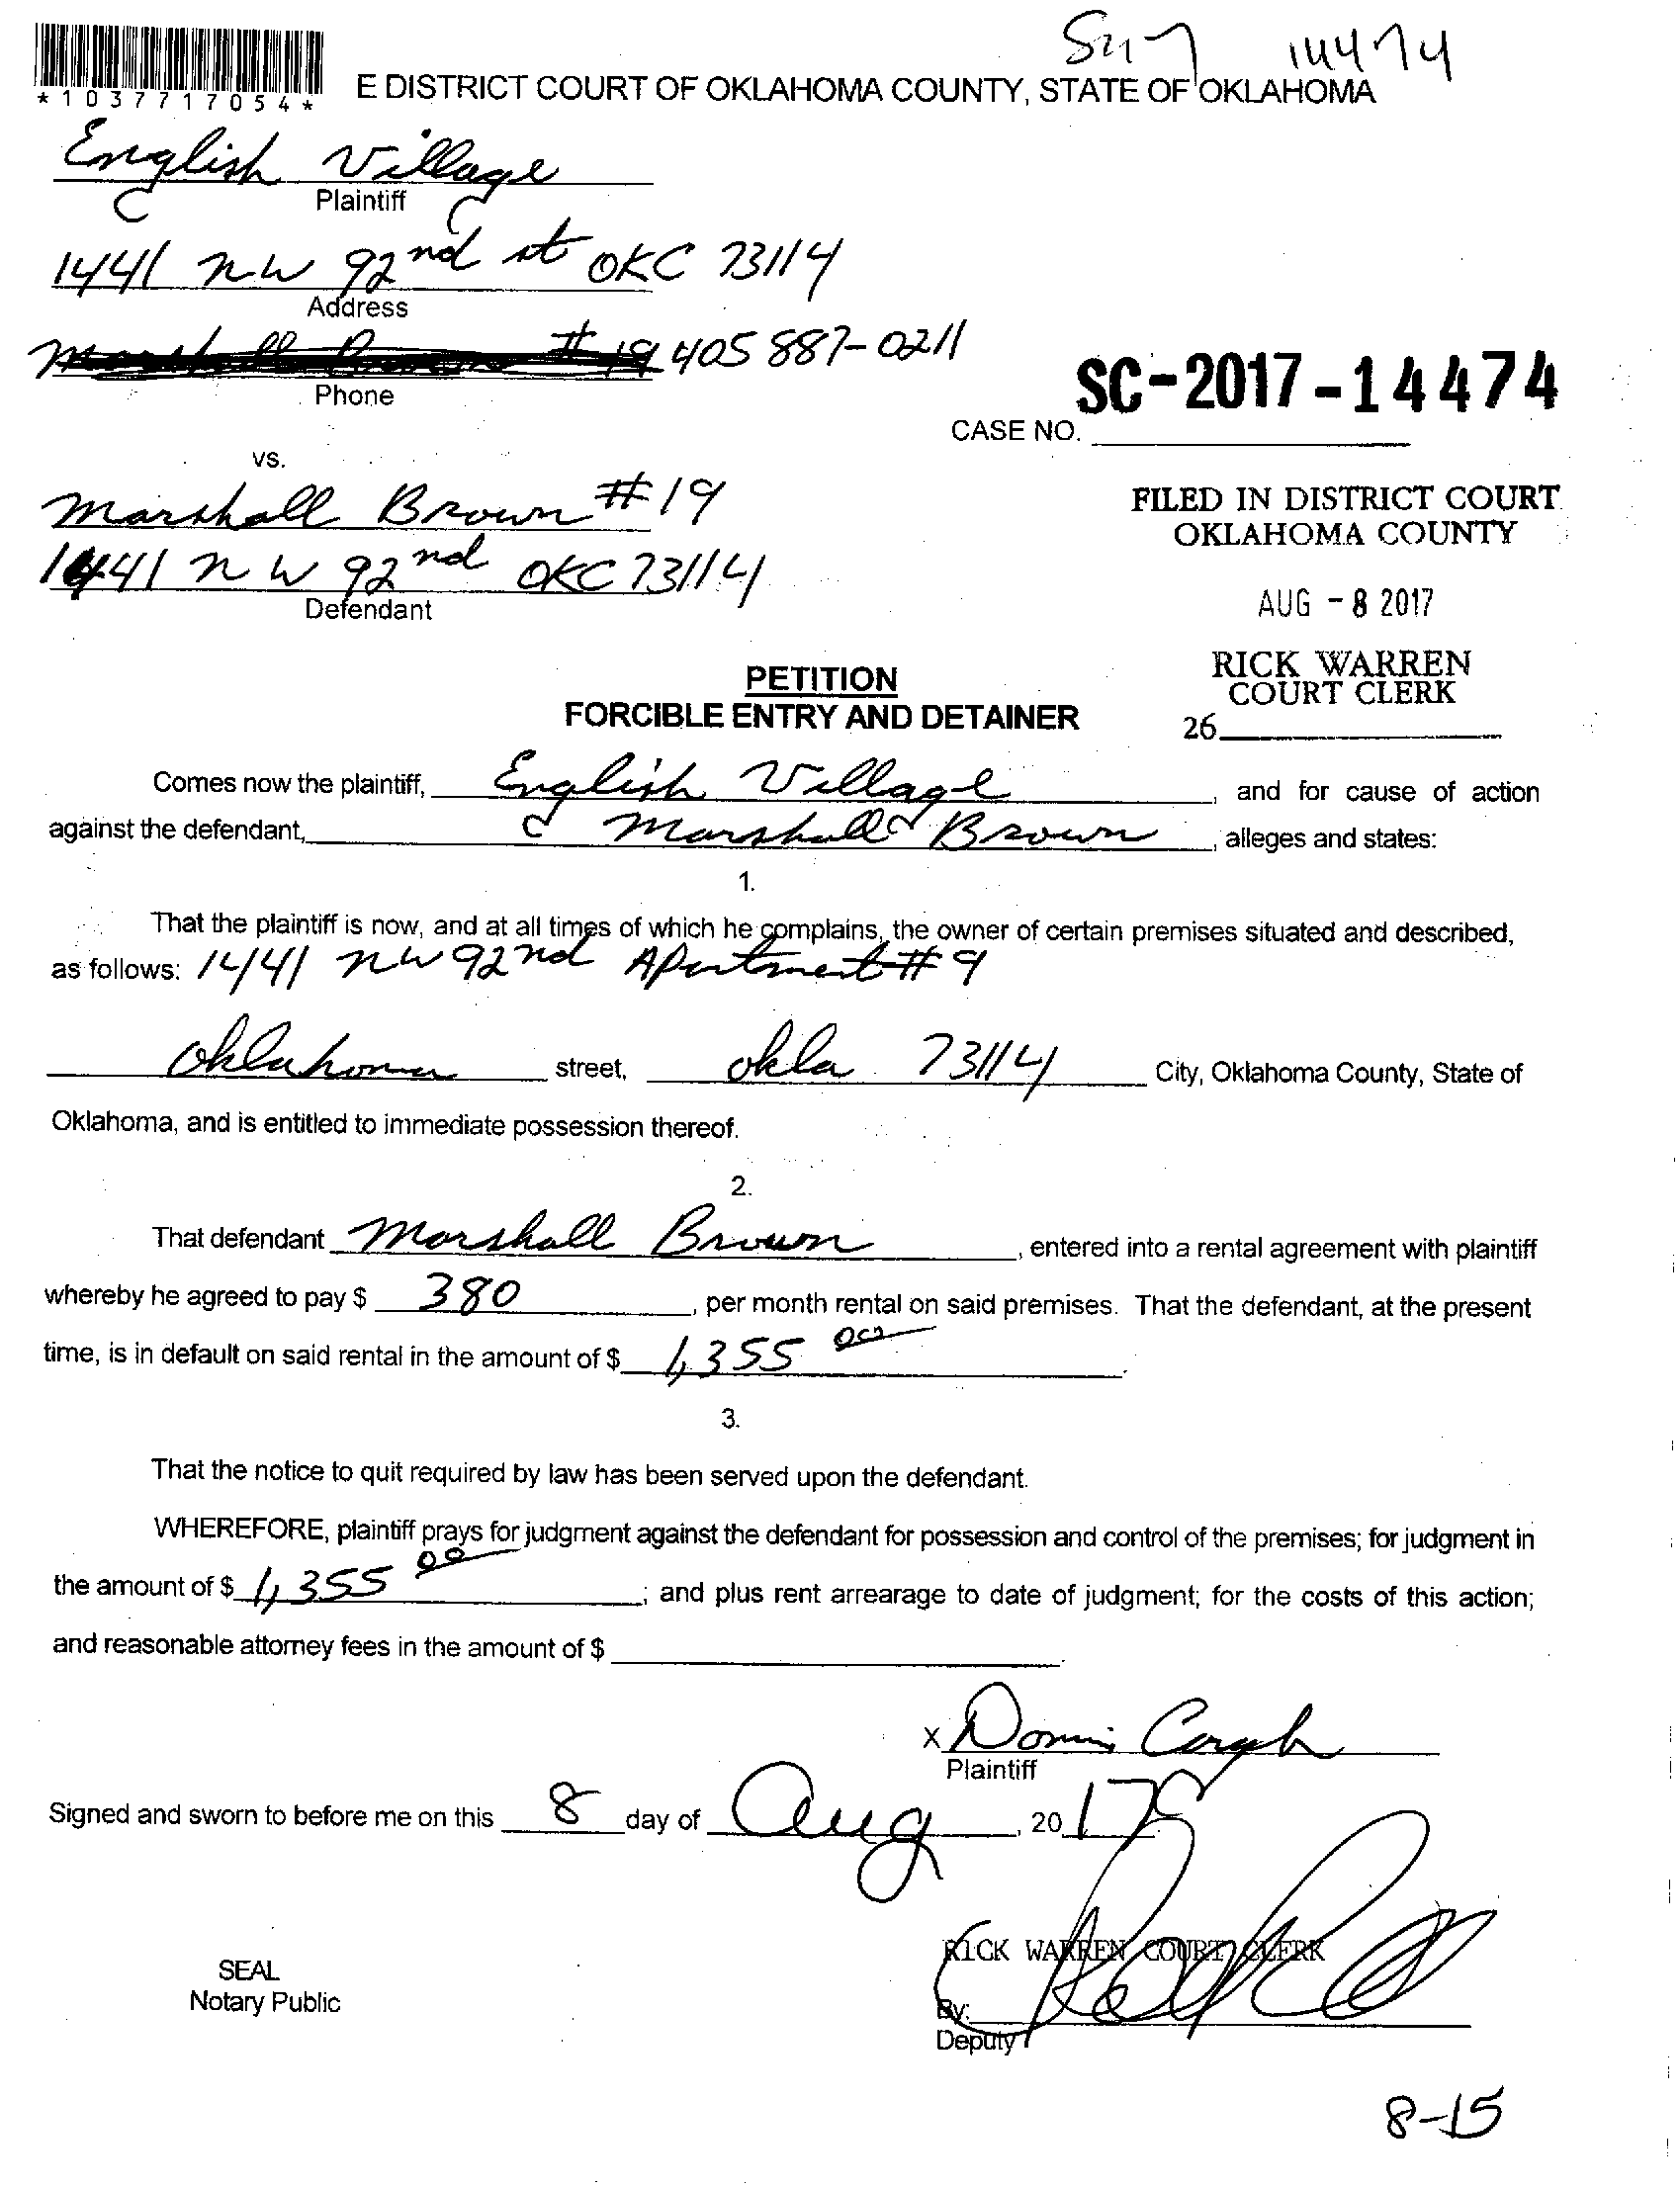 14474
*1037717054*
E DISTRICT COURT OF OKLAHOMA COUNTY, STATE OF OKLAHOMA
English Village
Plaintiff
1441 NW 92nd st OKC 73114
Address
Marshall Brown #19 405 887-0211
Phone
SC-2017-14474
CASE NO.
vs.
Marshall Brown #19
1441 NW 92nd OKC 73114
Defendant
FILED IN DISTRICT COURT
OKLAHOMA COUNTY
AUG -8 2017
RICK WARREN
COURT CLERK
26
PETITION
FORCIBLE ENTRY AND DETAINER
Comes now the plaintiff, English Village, and for cause of action
against the defendant, Marshall Brown, alleges and states:
1.
That the plaintiff is now, and at all times of which he complains, the owner of certain premises situated and described,
as follows: 1441 NW 92nd Apartment #9
Oklahoma street, okla 73114 City, Oklahoma County, State of
Oklahoma, and is entitled to immediate possession thereof.
2.
That defendant Marshall Brown, entered into a rental agreement with plaintiff
whereby he agreed to pay $ 380, per month rental on said premises. That the defendant, at the present
time, is in default on said rental in the amount of $ 1,355 00.
3.
That the notice to quit required by law has been served upon the defendant.
WHEREFORE, plaintiff prays for judgment against the defendant for possession and control of the premises; for judgment in
the amount of $ 1,355 00; and plus rent arrearage to date of judgment; for the costs of this action;
and reasonable attorney fees in the amount of $
X
Plaintiff
Signed and sworn to before me on this 8 day of Aug, 2017
SEAL
Notary Public
RICK WARREN COURT CLERK
By:
Deputy
8-15